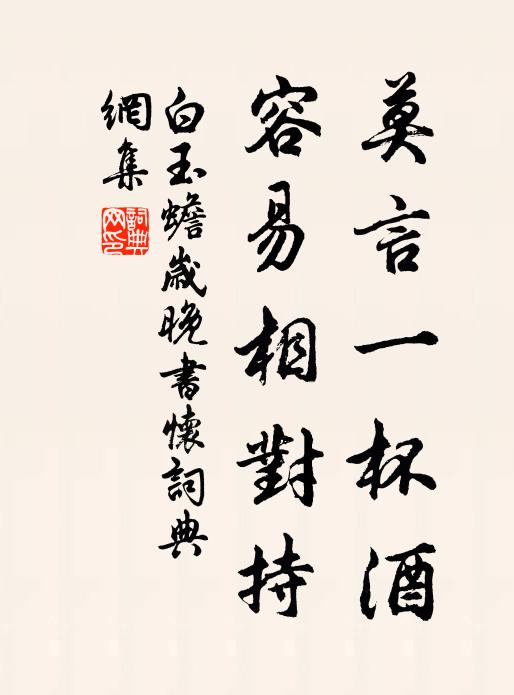 莫言一杯酒
容易相對持
白玉蟾歲晚書懷詞典
網集
詞典
网印